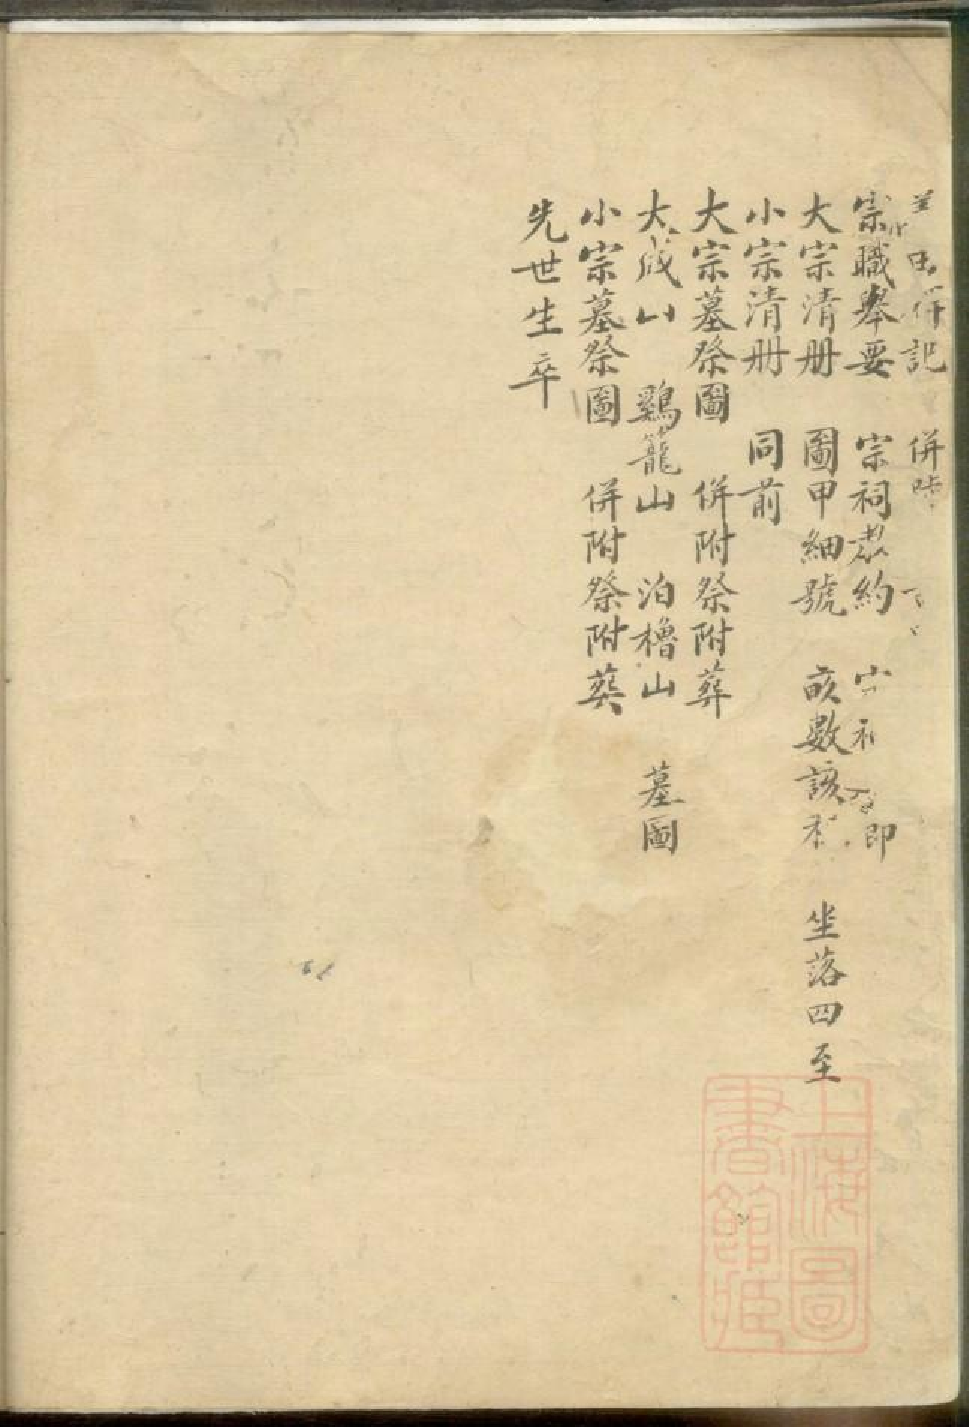 併記 併
宗職舉要 宗祠衆約 即
大宗清册 圖甲細號 畝數該 坐落四至
小宗清册 同前
大宗墓祭圖 併附祭附葬
大成山 鷄籠山 泊櫓山 墓圖
小宗墓祭圖 併附祭附葬
先世生卒
上海圖書館藏